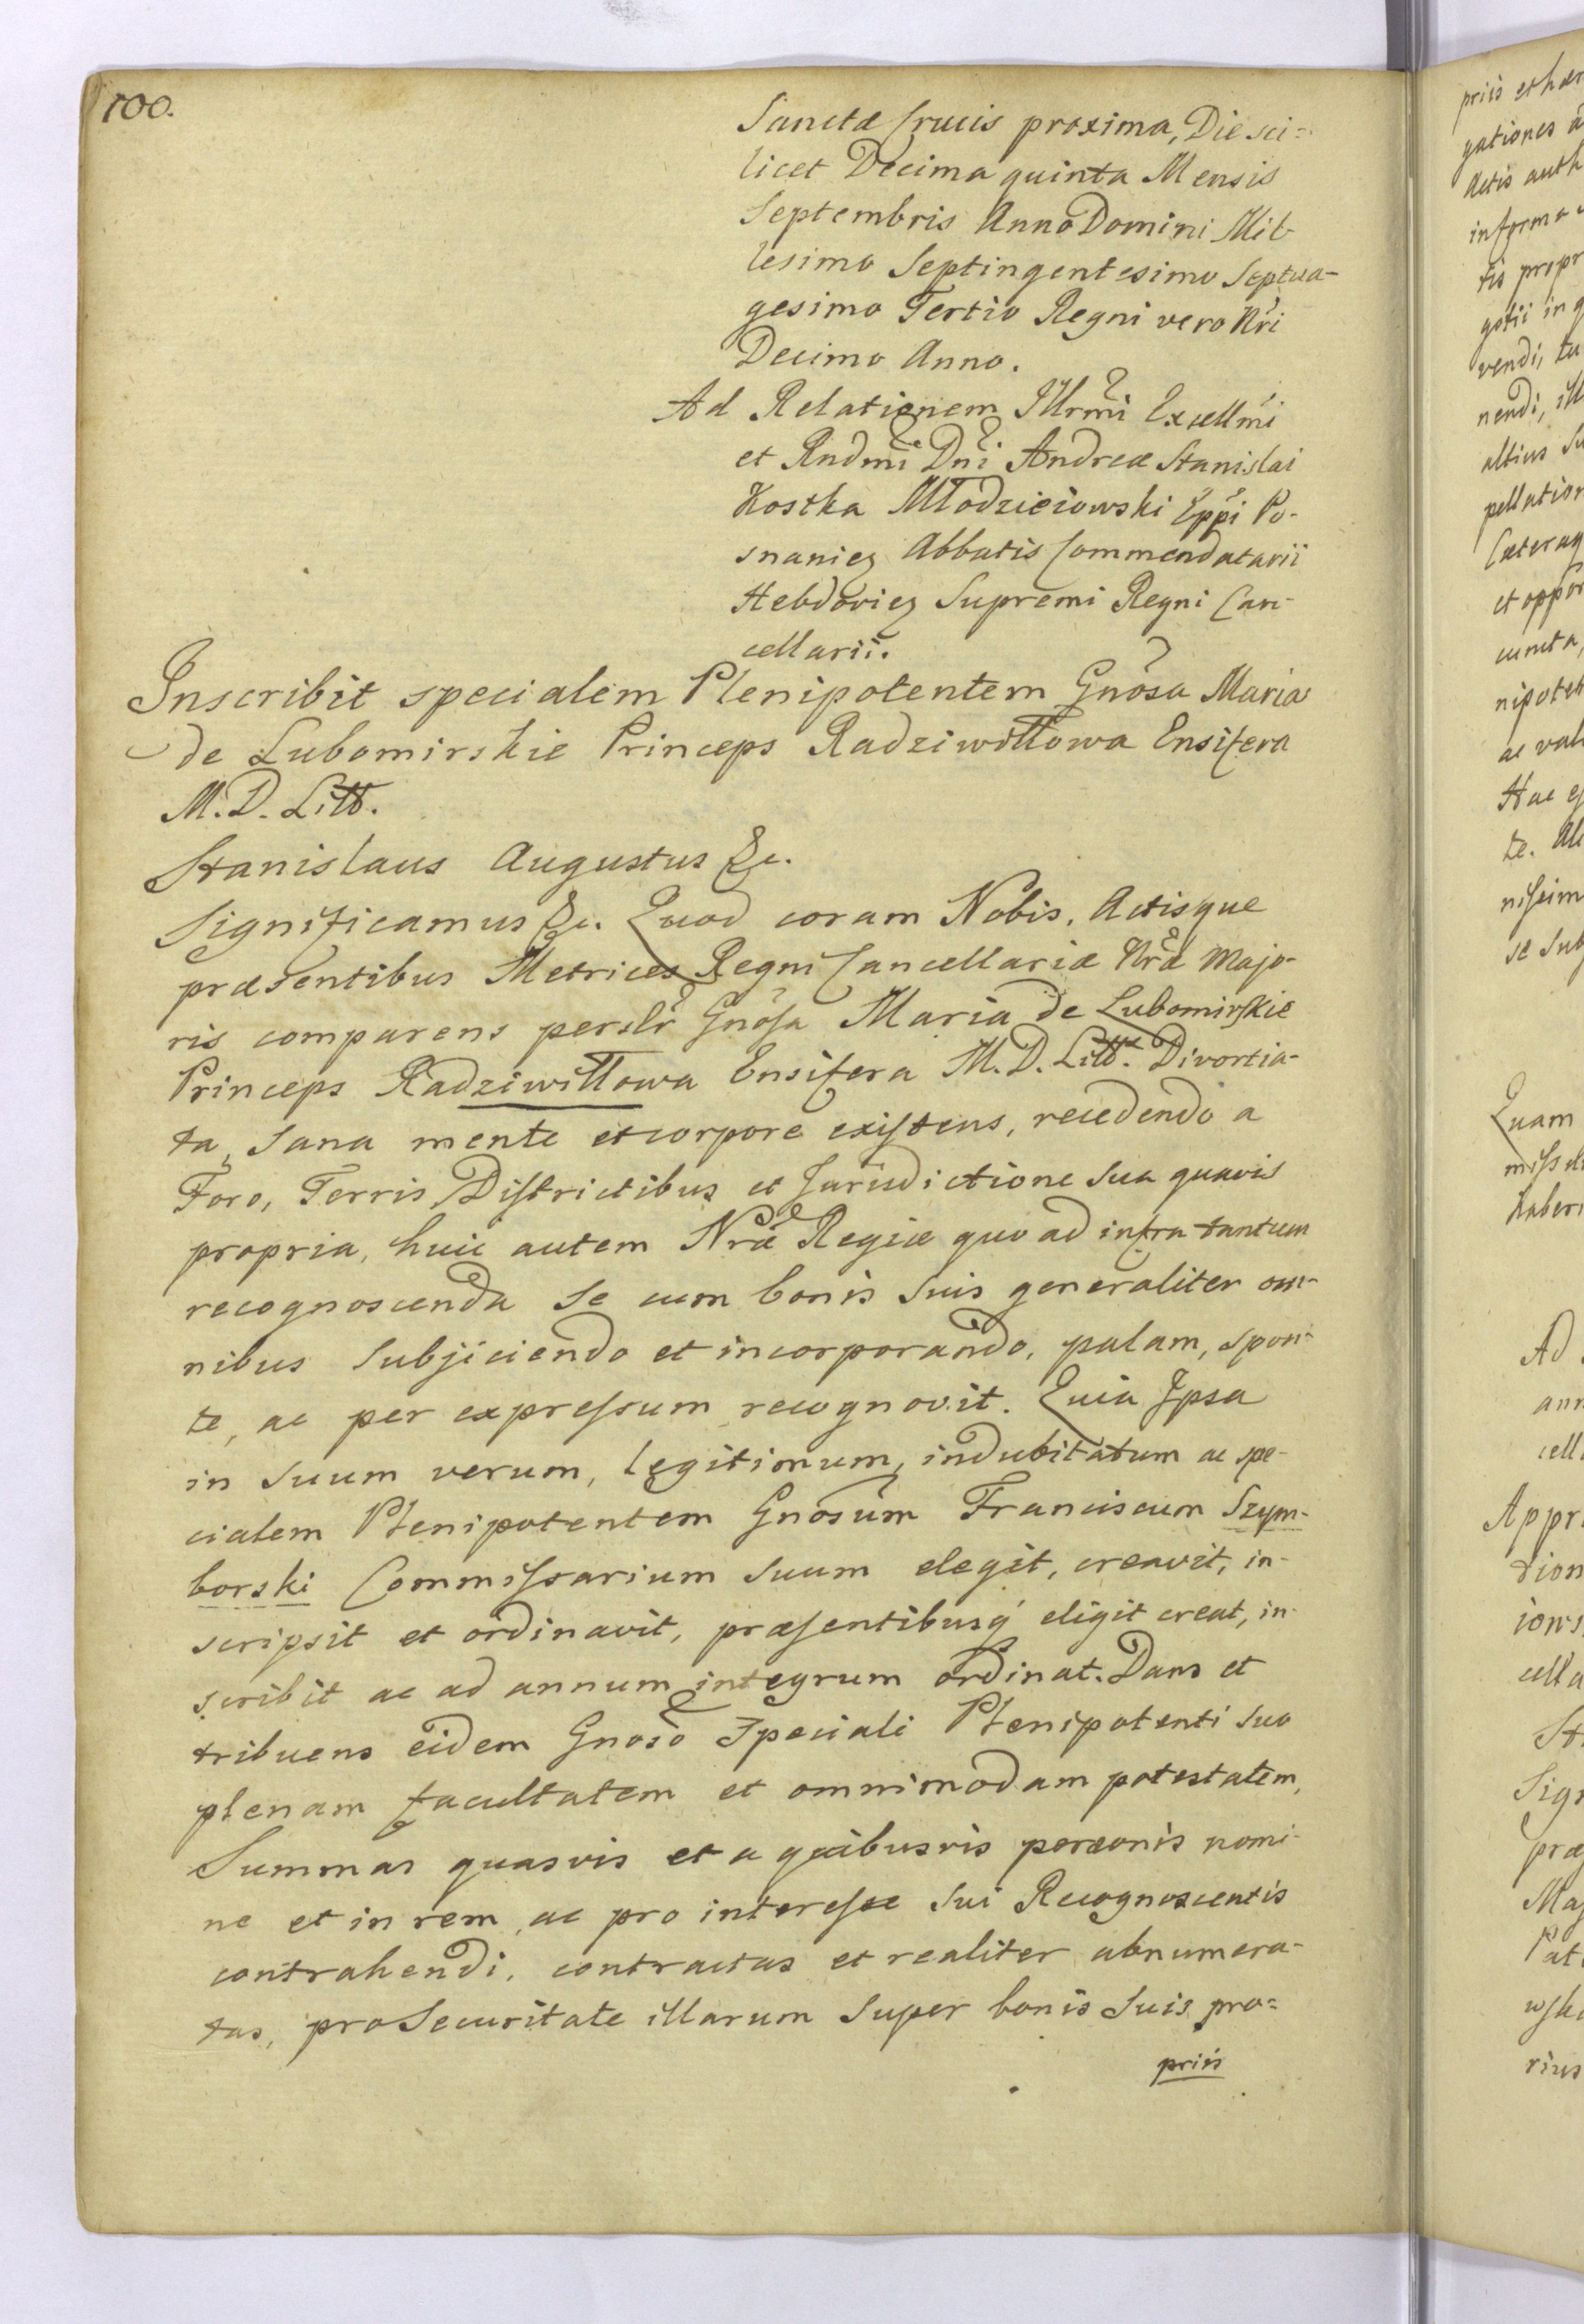 100.
Sanctæ Crucis proxima, Die sci=
licet Decima quinta Mensis
Septembris Anno Domini Mil-
lesimo Septingentesimo Septua-
gesimo Tertio Regni vero Nri
Decimo Anno.
Ad Relationem Illrmi Excellmi
et Rndmi Dni Andreæ Stanislai
Kostka Młodzieiowski Eppi Po-
snanież Abbatis Commendatarii
Hebdovież Supremi Regni Can-
cellarii.
Inscribit specialem Plenipotentem Gnosa Maria
de Lubomirskie Princeps Radziwiłłowa Ensifera
M. D. Litt.
Stanislaus Augustus &c.
Significamus &c. Quod coram Nobis, Actisque
præsentibus Metrices Regni Cancellariæ Nræ Majo-
ris comparens perslr Gnosa Maria de Lubomirskie
Princeps Radziwiłłowa Ensifera M. D. Litt. Divortia-
ta, Sana mente et corpore existens, recedendo a
Foro, Terris, Districtibus et Jurisdictione Sua quavis
propria, huic autem Nræ Regiæ quo ad infra tantum
recognoscenda Se cum bonis Suis generaliter om-
nibus Subjiciendo et incorporando, palam, spon-
te, ac per expressum recognovit. Quia Ipsa
in Suum verum, legitimum, indubitatum ac spe-
cialem Plenipotentem Gnosum Franciscum Szym-
borski Commissarium Suum elegit, creavit, in-
scripsit et ordinavit, præsentibusq eligit creat, in-
scribit ac ad annum integrum ordinat. Dans et
tribuens eidem Gnoso Speciali Plenipotenti Suo
plenam facultatem et omnimodam potestatem,
Summas quasvis et a quibusvis personis nomi-
ne et in rem, ac pro interesse Sui Recognoscentis
contrahendi, contractas et realiter abnumera-
tas, pro Securitate illarum Super bonis Suis pro=
priis